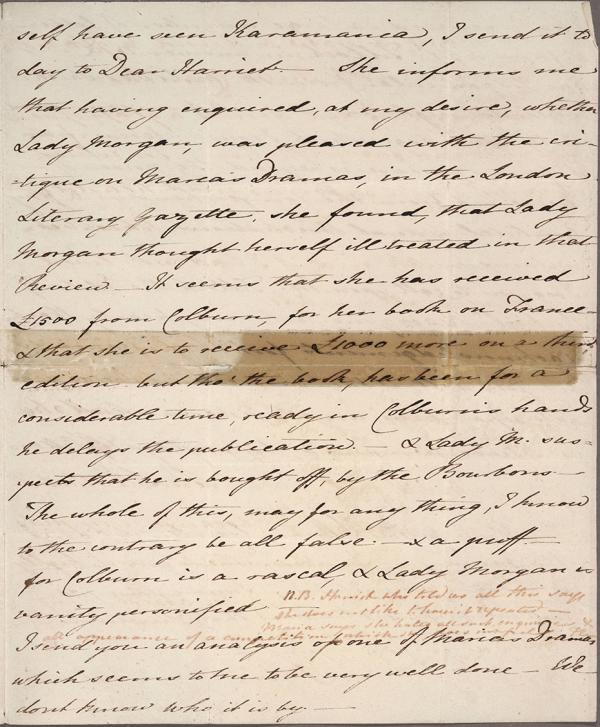 self have seen Karamania, I send it to
day to Dear Harriet — She informs me
that having enquired, at my desire, whether
Lady Morgan, was pleased with the cri-
-tique on Maria's Dramas, in the London
Literary Gazette, she found, that Lady
Morgan thought herself ill treated in that
Review — It seems that she has received
£1500 from Colburn, for her book on France —
& that she is to receive £1000 more on a third
edition but tho' the book, has been for a
considerable time, ready in Colburn's hands
he delays the publication. — & Lady M. sus=
pects that he is bought off, by the Bourbons —
The whole of this, may for any thing, I know
to the contrary be all false. — & a puff —
for Colburn is a rascal, & Lady Morgan is
vanity personified
N.B. Harriet who told us all this says
she does not like to have it repeated —
Maria says she hates all such enquiries, &
all appearance of a competition which she
I send you an analysis of one of Maria's Dramas
which seems to me to be very well done — We
dont know who it is by. —